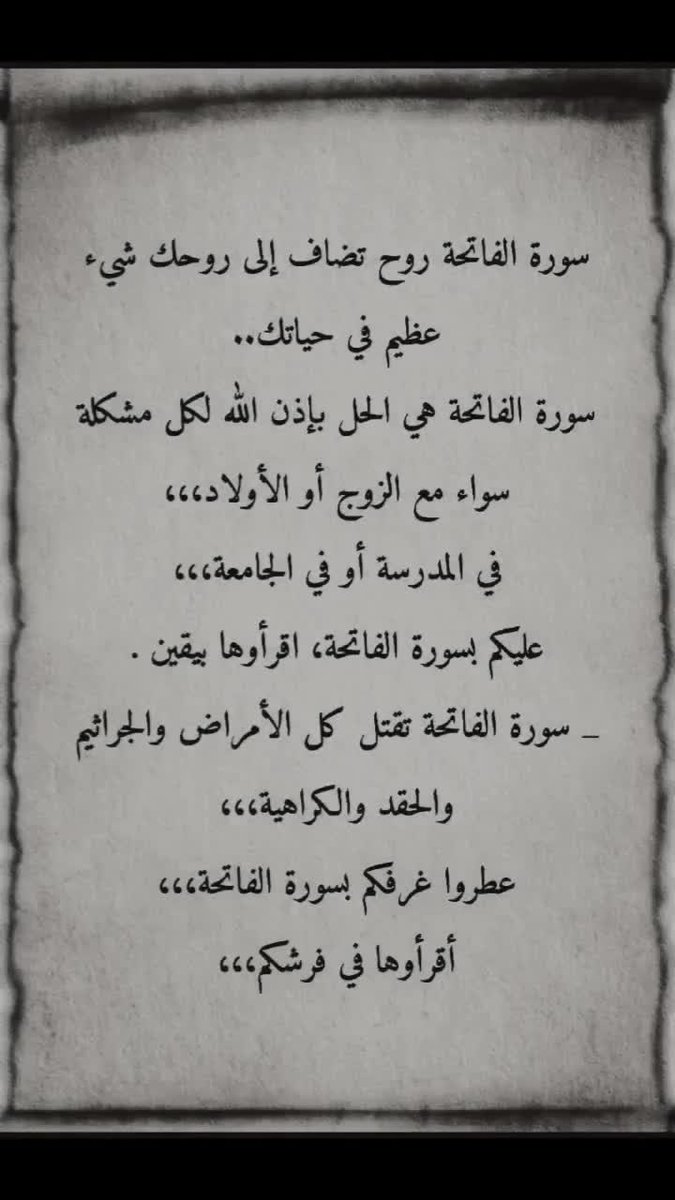 سورة الفاتحة روح تضاف إلى روحك شيء
عظيم في حياتك..
سورة الفاتحة هي الحل بإذن الله لكل مشكلة
سواء مع الزوج أو الأولاد،،،
في المدرسة أو في الجامعة،،،
عليكم بسورة الفاتحة، اقرأوها بيقين .
_ سورة الفاتحة تقتل كل الأمراض والجراثيم
والحقد والكراهية،،،
عطروا غرفكم بسورة الفاتحة،،،
أقرأوها في فرشكم،،،